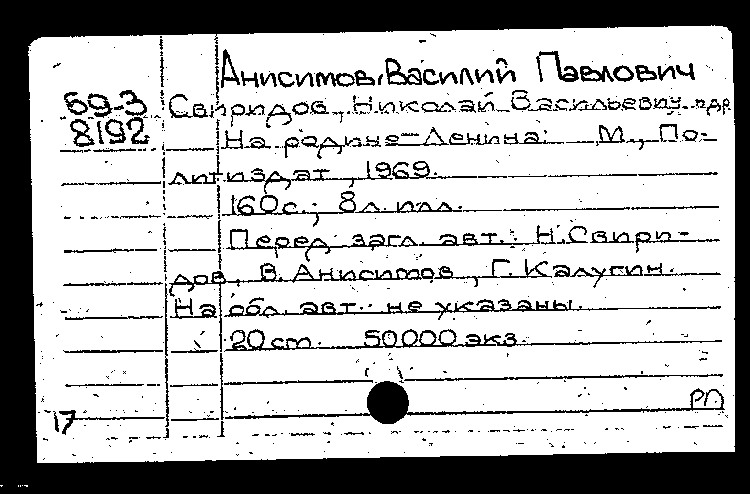 Анисимов, Василий Павлович
69-3 Свиридов, Николай Васильевич и др
8192 На родине Ленина. М., По-
литиздат, 1969.
160 с.; 8 л. илл.
Перед загл. авт.: Н. Свири-
дов, В. Анисимов, Г. Калугин.
На обл. авт. не указаны.
20 см. 50000 экз.
РП
17